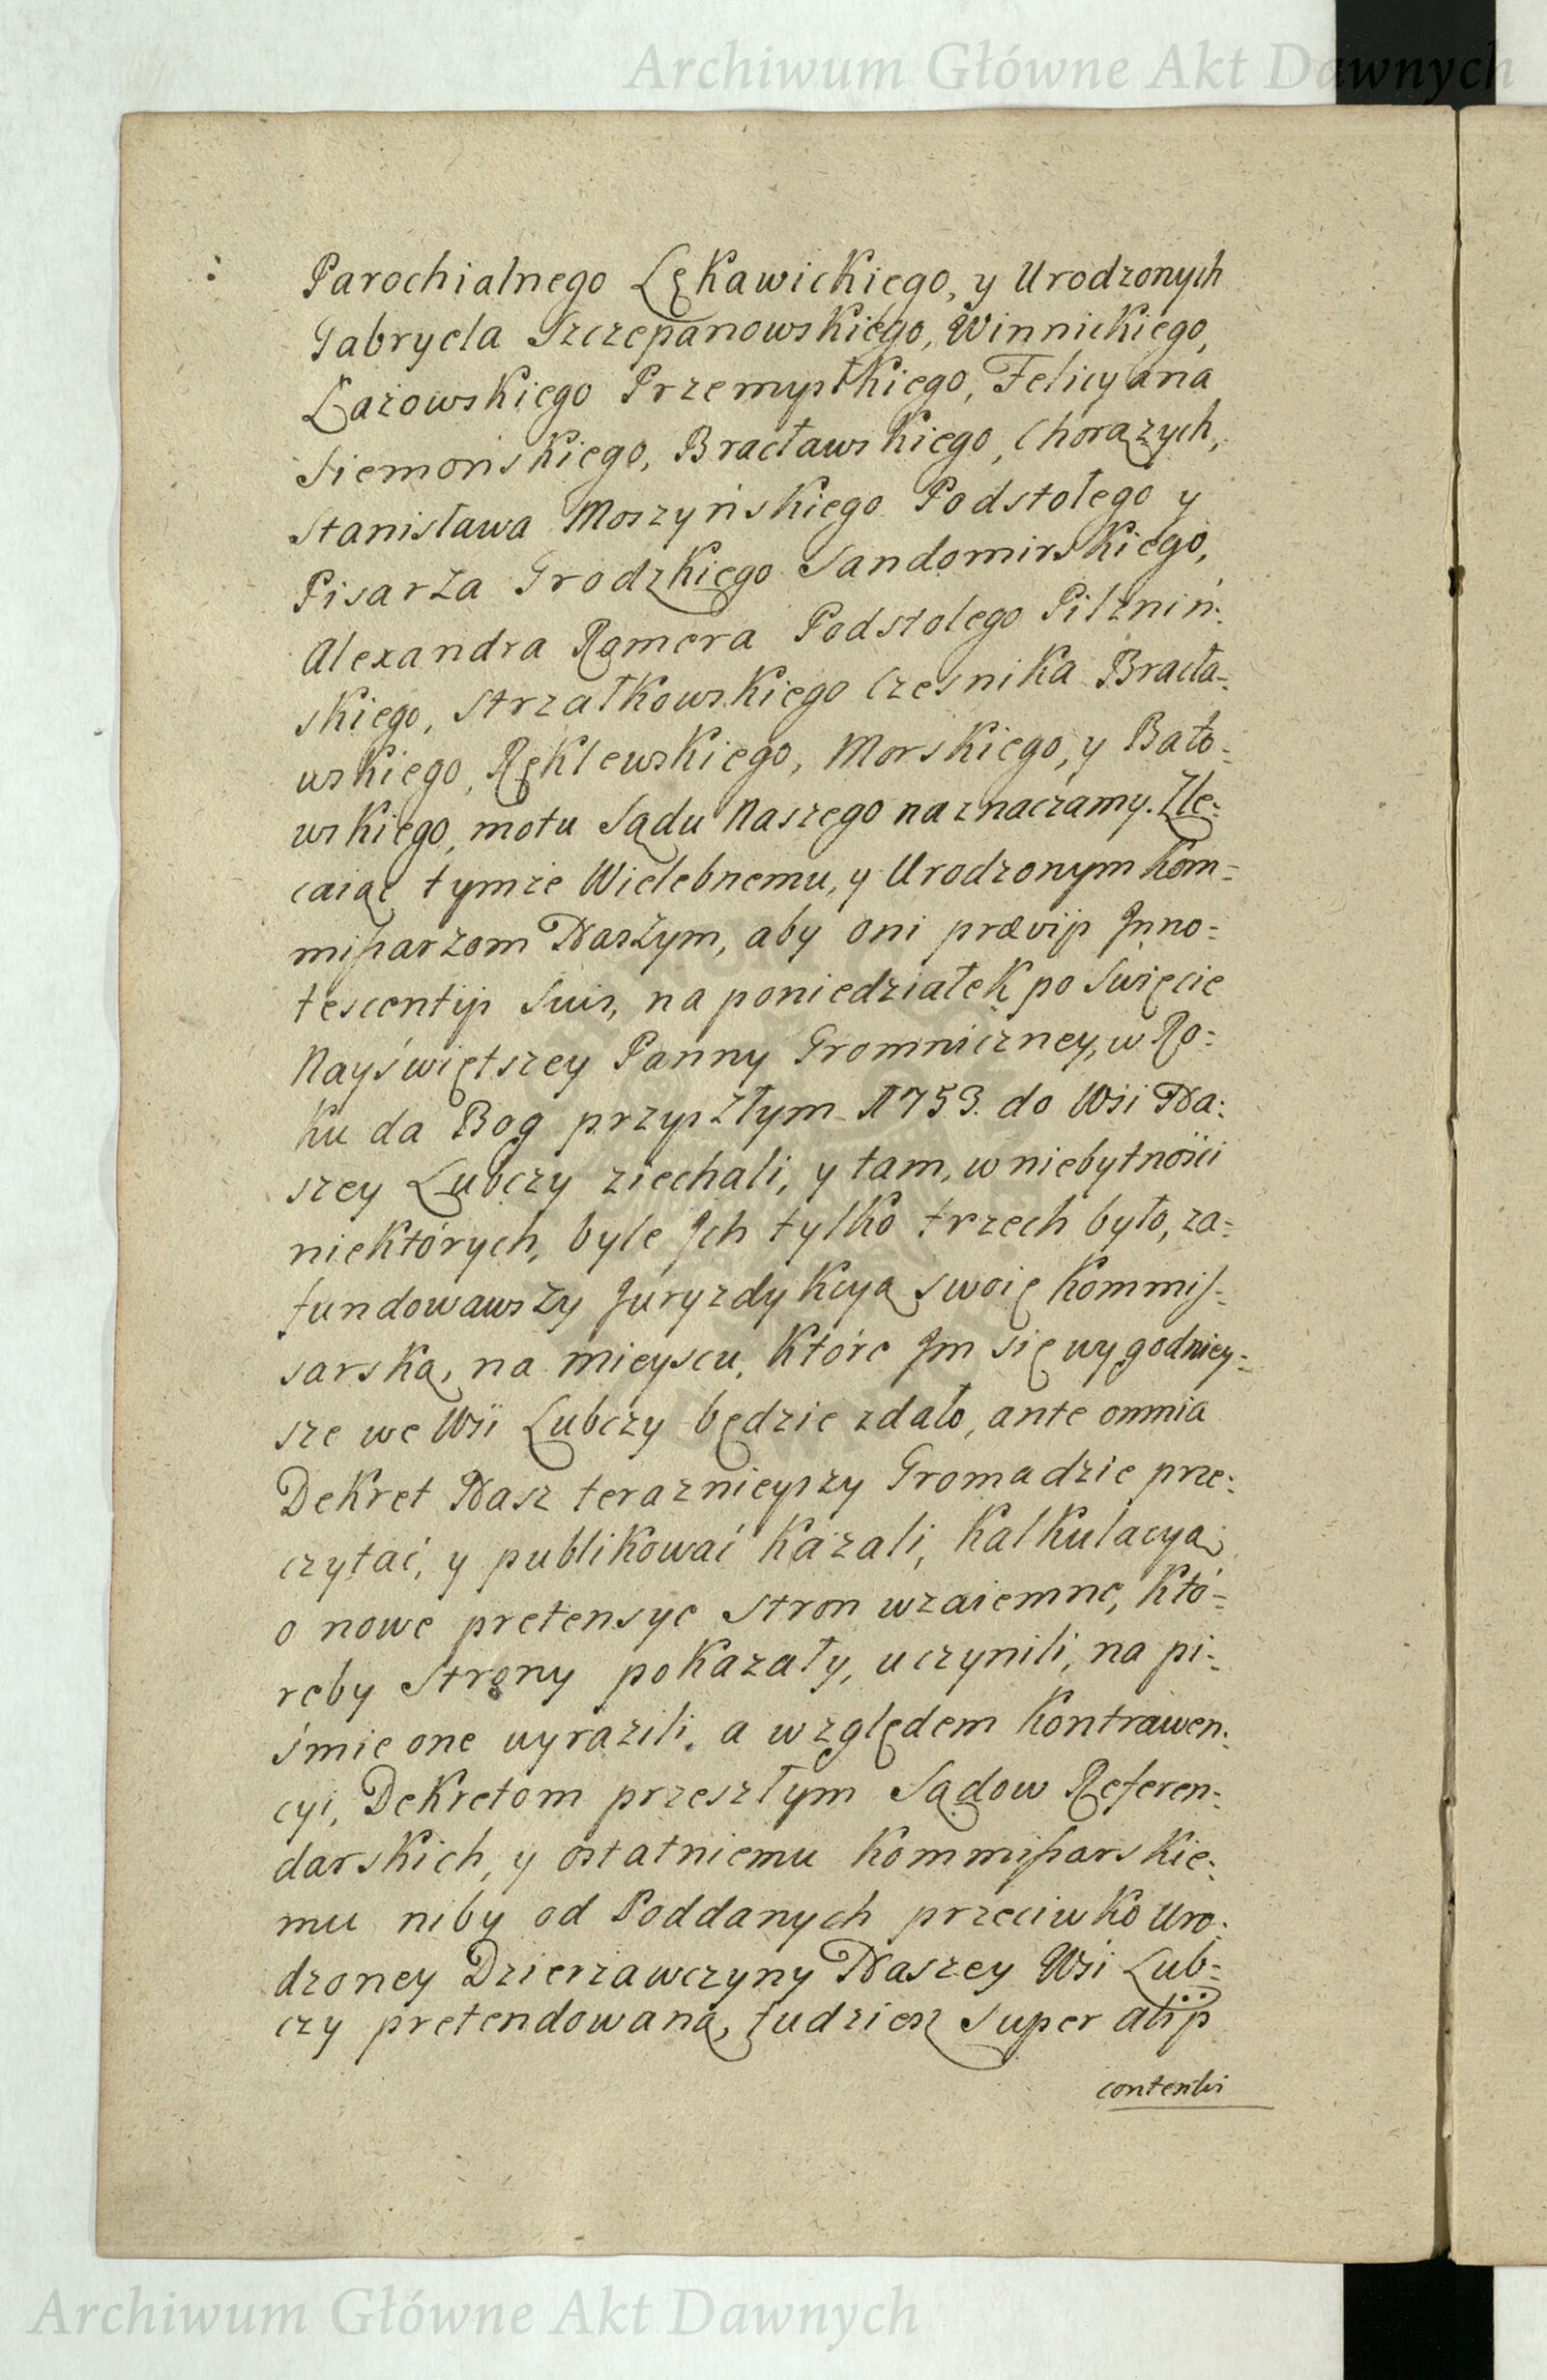 Archiwum Główne Akt Dawnych
Parochialnego Lękawickiego, y Urodzonych
Gabryela Szczepanowskiego, Winnickiego,
Łazowskiego Przemyslkiego, Felicyana
Siemońskiego, Bracławskiego, Chorązych,
Stanisława Moszyńskiego Podstolego y
Pisarza Grodzkiego Sandomirskiego,
Alexandra Romera Podstolego Pilzniń:
skiego, Strzałkowskiego Czesnika Bracła=
wskiego, Ręklewskiego, Morskiego, y Bato=
wskiego, motu Sądu Naszego naznaczamy. Zle=
caiąc tymże Wielebnemu, y Urodzonym Kom=
mißarzom Naszym, aby oni prævijs Inno=
tescentijs Suis, na poniedziałek po Swięcie
Nayświętszey Panny Gromniczney, w Ro=
ku da Bog przyszłym 1753. do Wsi Na:
szey Lubczy ziechali, y tam, w niebytności
niektórych, byle Ich tylko trzech było, za=
fundowawszy Juryzdykcyą swoię Kommis=
sarską, na mieyscu, które Im się wygodniey=
sze we Wsi Lubczy będzie zdało, ante omnia
Dekret Nasz terazniejszy Gromadzie prze:
czytać, y publikować kazali, Kalkulacyą
o nowe pretensye Stron wzaiemne, któ=
reby Strony pokazały, uczynili, na pi:
śmie one wyrazili, a względem Kontrawen:
cyi, Dekretom przeszłym Sądow Referen:
darskich, y ostatniemu Kommißarskie:
mu niby od Poddanych przeciwko Uro:
dzoney Dzierzawczyny Naszey Wsi Lub=
czy pretendowaną, tudziesz Super alijs
contentis
Archiwum Główne Akt Dawnych